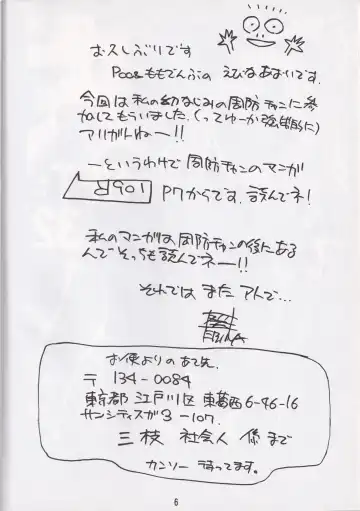 おひさしぶりです
Poo&ももでんぶの えびなあおいです.
今回は私の幼なじみの周防チャンに参
加してもらいました.(ってゆーか強制的に)
アリガトねー!!
ーというわけで 周防チャンのマンガ
P7からです. 読んでネ!
私のマンガは周防チャンの後にある
んでそっちも読んでネー!!
それでは また アトで...
EBINA
お便りのあて先.
〒 134-0084
東京都 江戸川区 東葛西6-46-16
サンシティスガ3-107.
三枝 社会人 係まで
カンソー まってます.
6